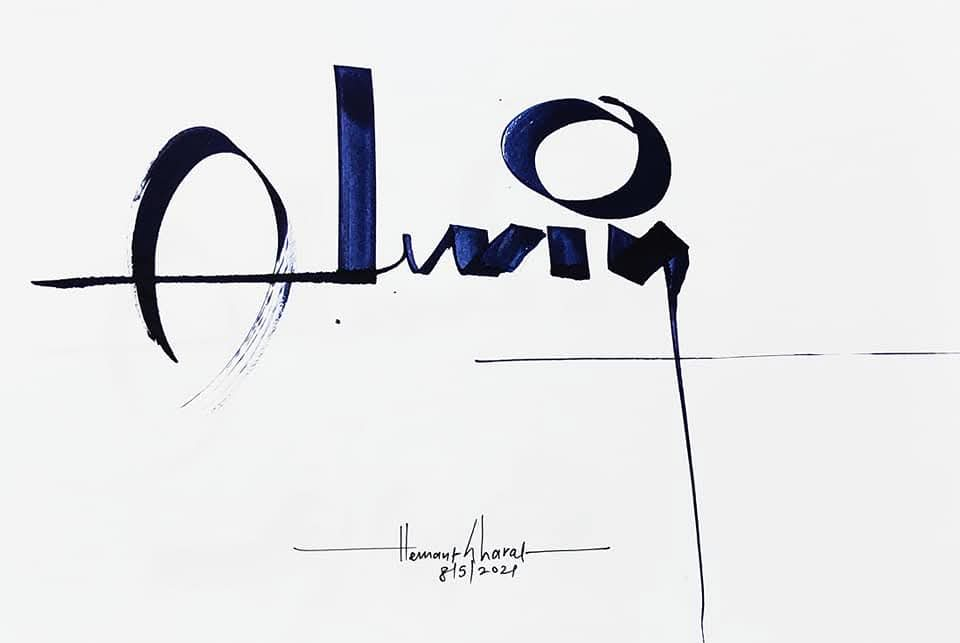 Alwin
Hemant Gharat
8/5/2021